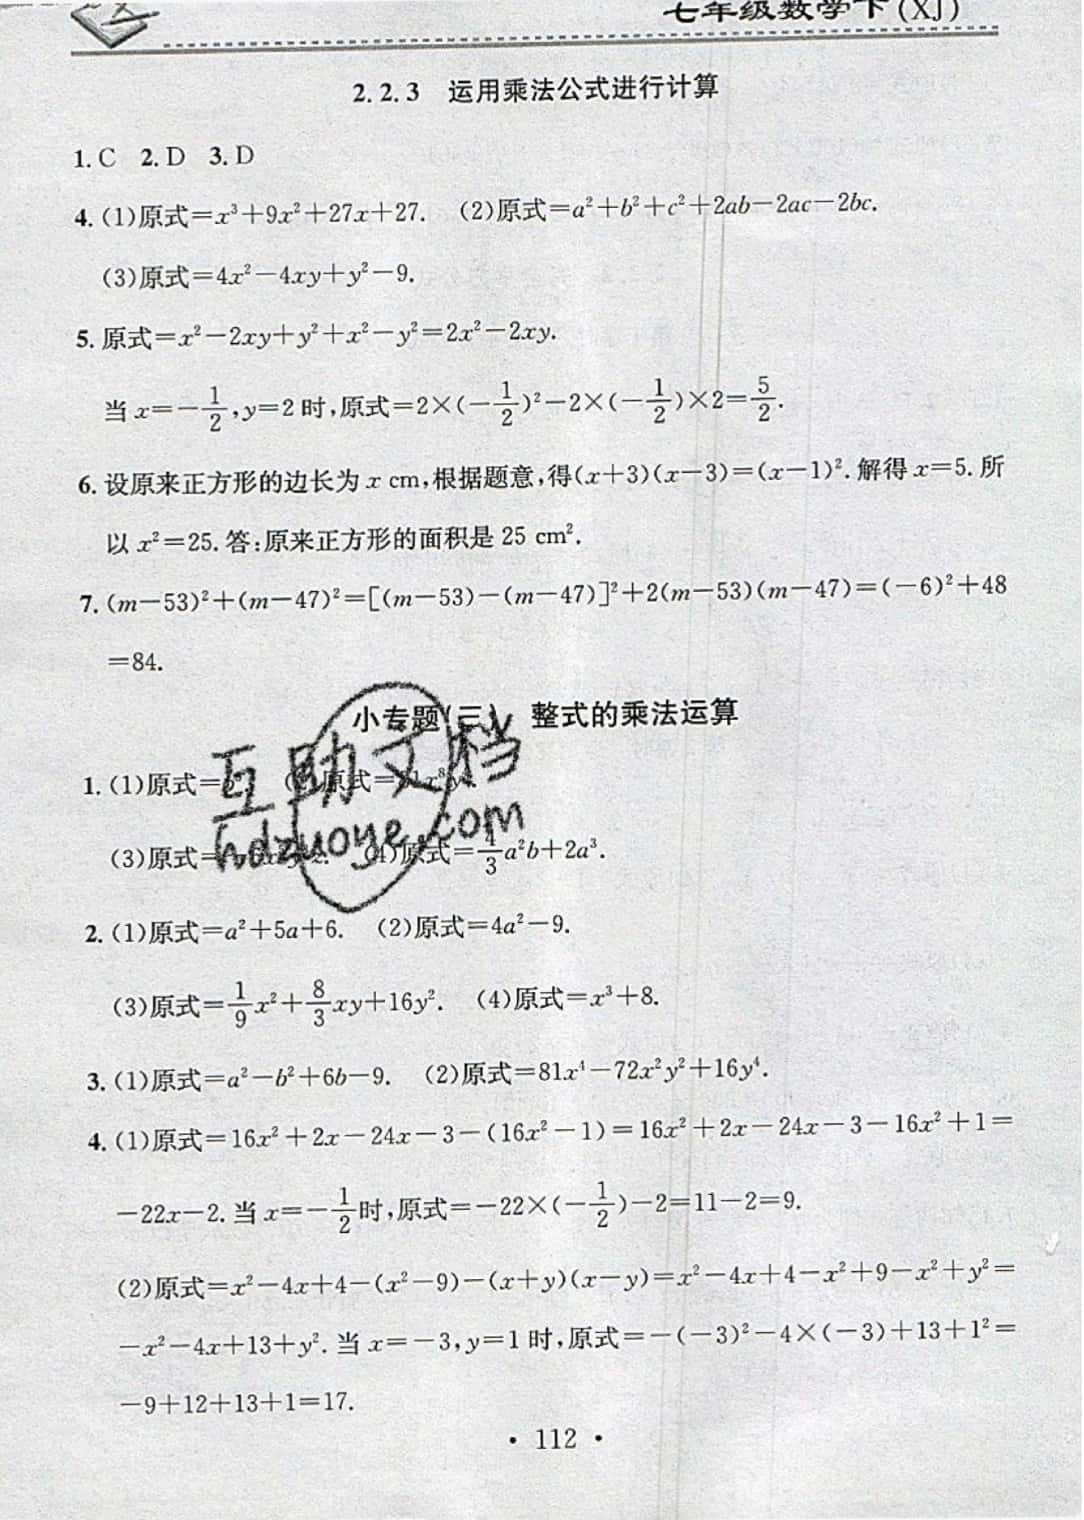 七年级数学下(XJ)
2.2.3 运用乘法公式进行计算
1. C 2. D 3. D
4. (1)原式=x³+9x²+27x+27. (2)原式=a²+b²+c²+2ab-2ac-2bc.
(3)原式=4x²-4xy+y²-9.
5. 原式=x²-2xy+y²+x²-y²=2x²-2xy.
当 x=-1/2,y=2 时,原式=2×(-1/2)²-2×(-1/2)×2=5/2.
6. 设原来正方形的边长为 x cm,根据题意,得(x+3)(x-3)=(x-1)².解得 x=5. 所
以 x²=25. 答:原来正方形的面积是 25 cm².
7. (m-53)²+(m-47)²=[(m-53)-(m-47)]²+2(m-53)(m-47)=(-6)²+48
=84.
小专题(三) 整式的乘法运算
1. (1)原式= 原式=
互助文档
hdzuoye.com
(3)原式= (4)原式=4/3a²b+2a³.
2. (1)原式=a²+5a+6. (2)原式=4a²-9.
(3)原式=1/9x²+8/3xy+16y². (4)原式=x³+8.
3. (1)原式=a²-b²+6b-9. (2)原式=81x⁴-72x²y²+16y⁴.
4. (1)原式=16x²+2x-24x-3-(16x²-1)=16x²+2x-24x-3-16x²+1=
-22x-2. 当 x=-1/2时,原式=-22×(-1/2)-2=11-2=9.
(2)原式=x²-4x+4-(x²-9)-(x+y)(x-y)=x²-4x+4-x²+9-x²+y²=
-x²-4x+13+y². 当 x=-3,y=1 时,原式=-(-3)²-4×(-3)+13+1²=
-9+12+13+1=17.
· 112 ·